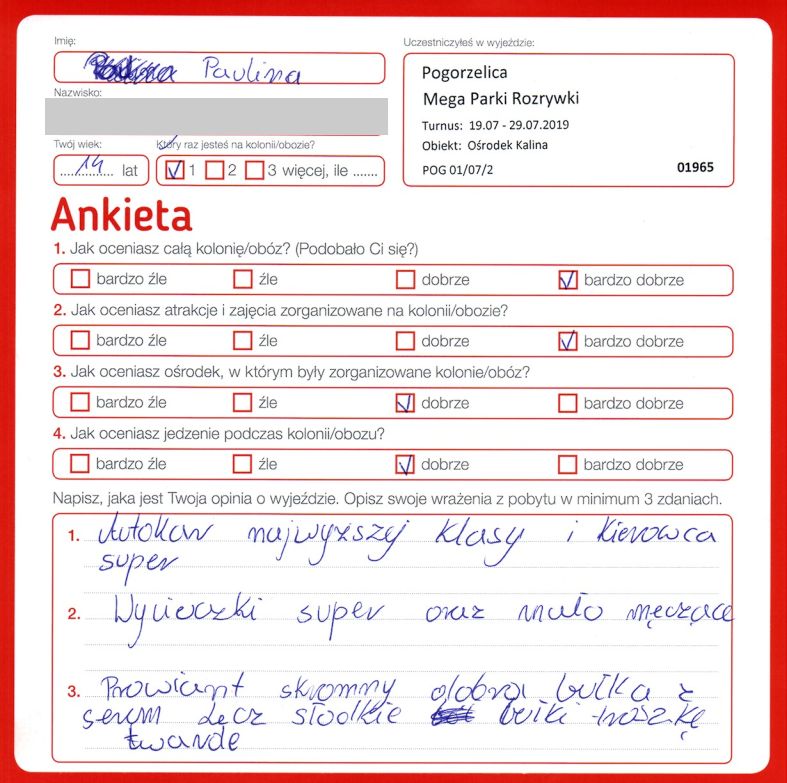 Imię:
Paulina
Nazwisko:
Twój wiek:
14 lat
Który raz jesteś na kolonii/obozie?
1 2 3 więcej, ile .......
Uczestniczyłeś w wyjeździe:
Pogorzelica
Mega Parki Rozrywki
Turnus: 19.07 - 29.07.2019
Obiekt: Ośrodek Kalina
POG 01/07/2 01965
Ankieta
1. Jak oceniasz całą kolonię/obóz? (Podobało Ci się?)
bardzo źle źle dobrze bardzo dobrze
2. Jak oceniasz atrakcje i zajęcia zorganizowane na kolonii/obozie?
bardzo źle źle dobrze bardzo dobrze
3. Jak oceniasz ośrodek, w którym były zorganizowane kolonie/obóz?
bardzo źle źle dobrze bardzo dobrze
4. Jak oceniasz jedzenie podczas kolonii/obozu?
bardzo źle źle dobrze bardzo dobrze
Napisz, jaka jest Twoja opinia o wyjeździe. Opisz swoje wrażenia z pobytu w minimum 3 zdaniach.
1. Autokar najwyższej klasy i kierowca
super
2. Wycieczki super oraz mało męczące
3. Prowiant skromny dobra bułka z
serem lecz słodkie bułki troszkę
twarde